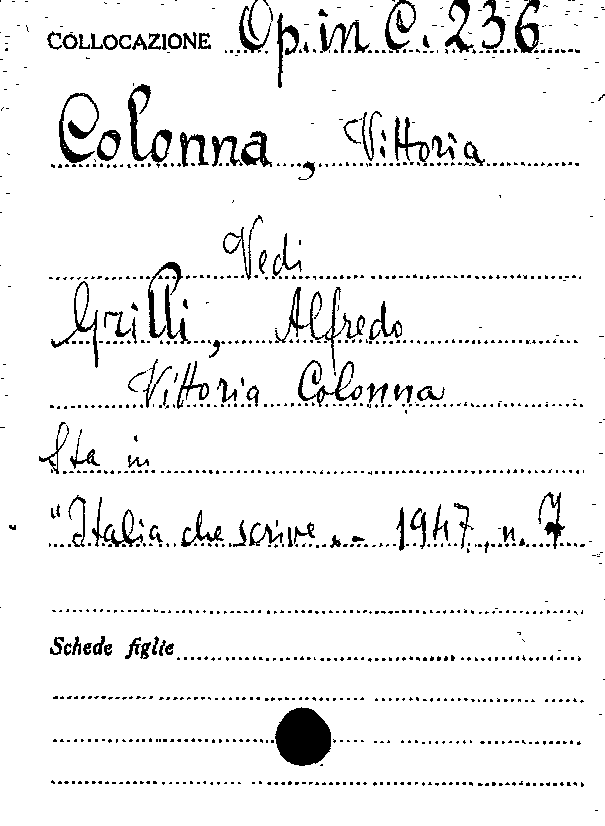 COLLOCAZIONE Op. in C. 236
Colonna, Vittoria
Vedi
Grilli, Alfredo
Vittoria Colonna
Sta in
"Italia che scrive.. - 1947, n. 7
Schede figlie